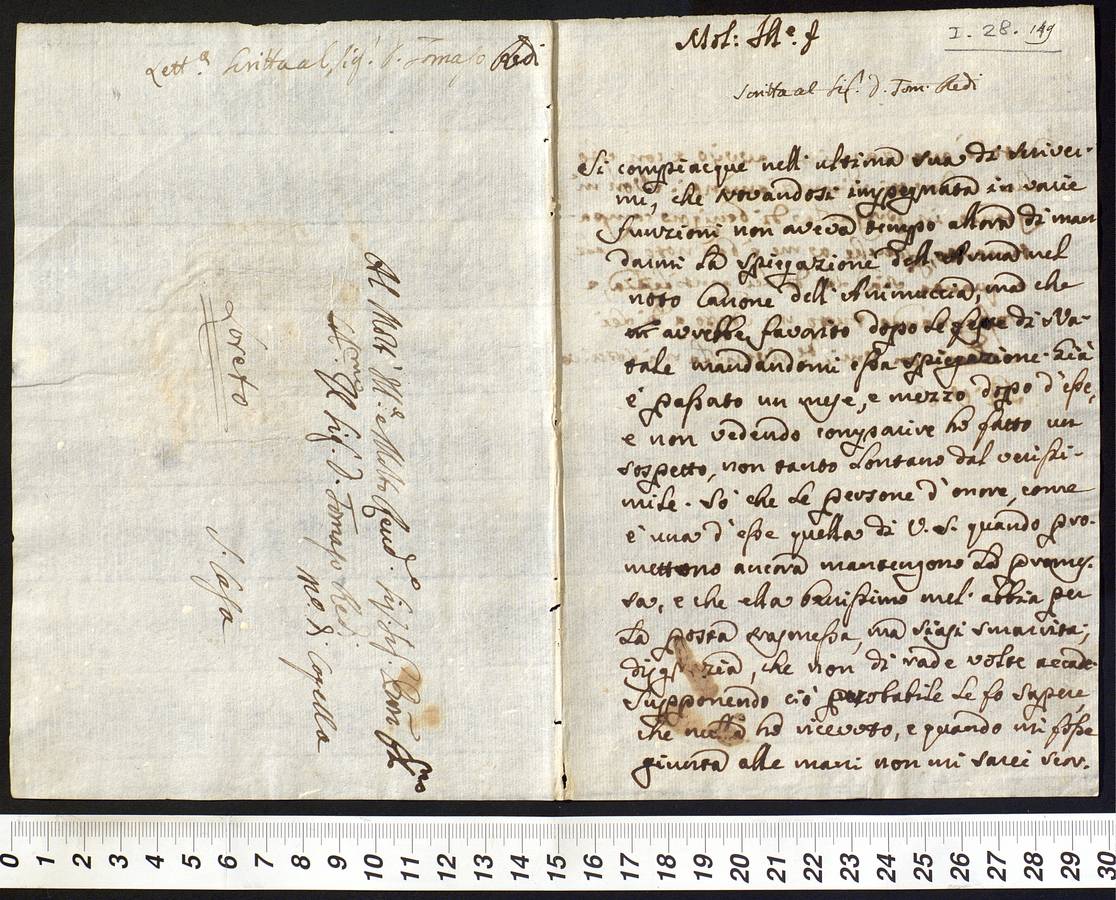 Lett.a scritta al Sig.r D. Tomaso Redi
Al Molt' Ill.e e Molto Revd.o Sig.r Sig.r Pron
Il Sig. D. Tomaso Redi
m.o di Capella
Loreto
S. Casa
Mol: Ill.e
I. 28. 149
scritta al Sig.r D. Tom. Redi
Si compiacque nell' ultima sua di scriver-
mi, che trovandosi impegnata in varie
funzioni non aveva tempo allora di man
darmi la spiegazione dell' nel
noto Canone dell' Animuccia, ma che
m' avrebbe favorito dopo le feste di Na-
tale mandandomi essa spiegazione. Già
è passato un mese, e mezzo dopo d'esse,
e non vedendo comparire hò fatto un
sospetto, non tanto lontano dal verisi-
mile. Sò che le persone d'onore, come
è una d'esse quella di V. S. quando pro-
mettono ancora mantengono la promes-
sa, e che ella benissimo mel' abbia per
la posta trasmessa, ma siasi smarrita;
disgrazia, che non di rade volte accade
supponendo ciò probabile le fo sapere,
che nulla hò ricevuto, e quando mi fosse
giunta alle mani non mi sarei scor-